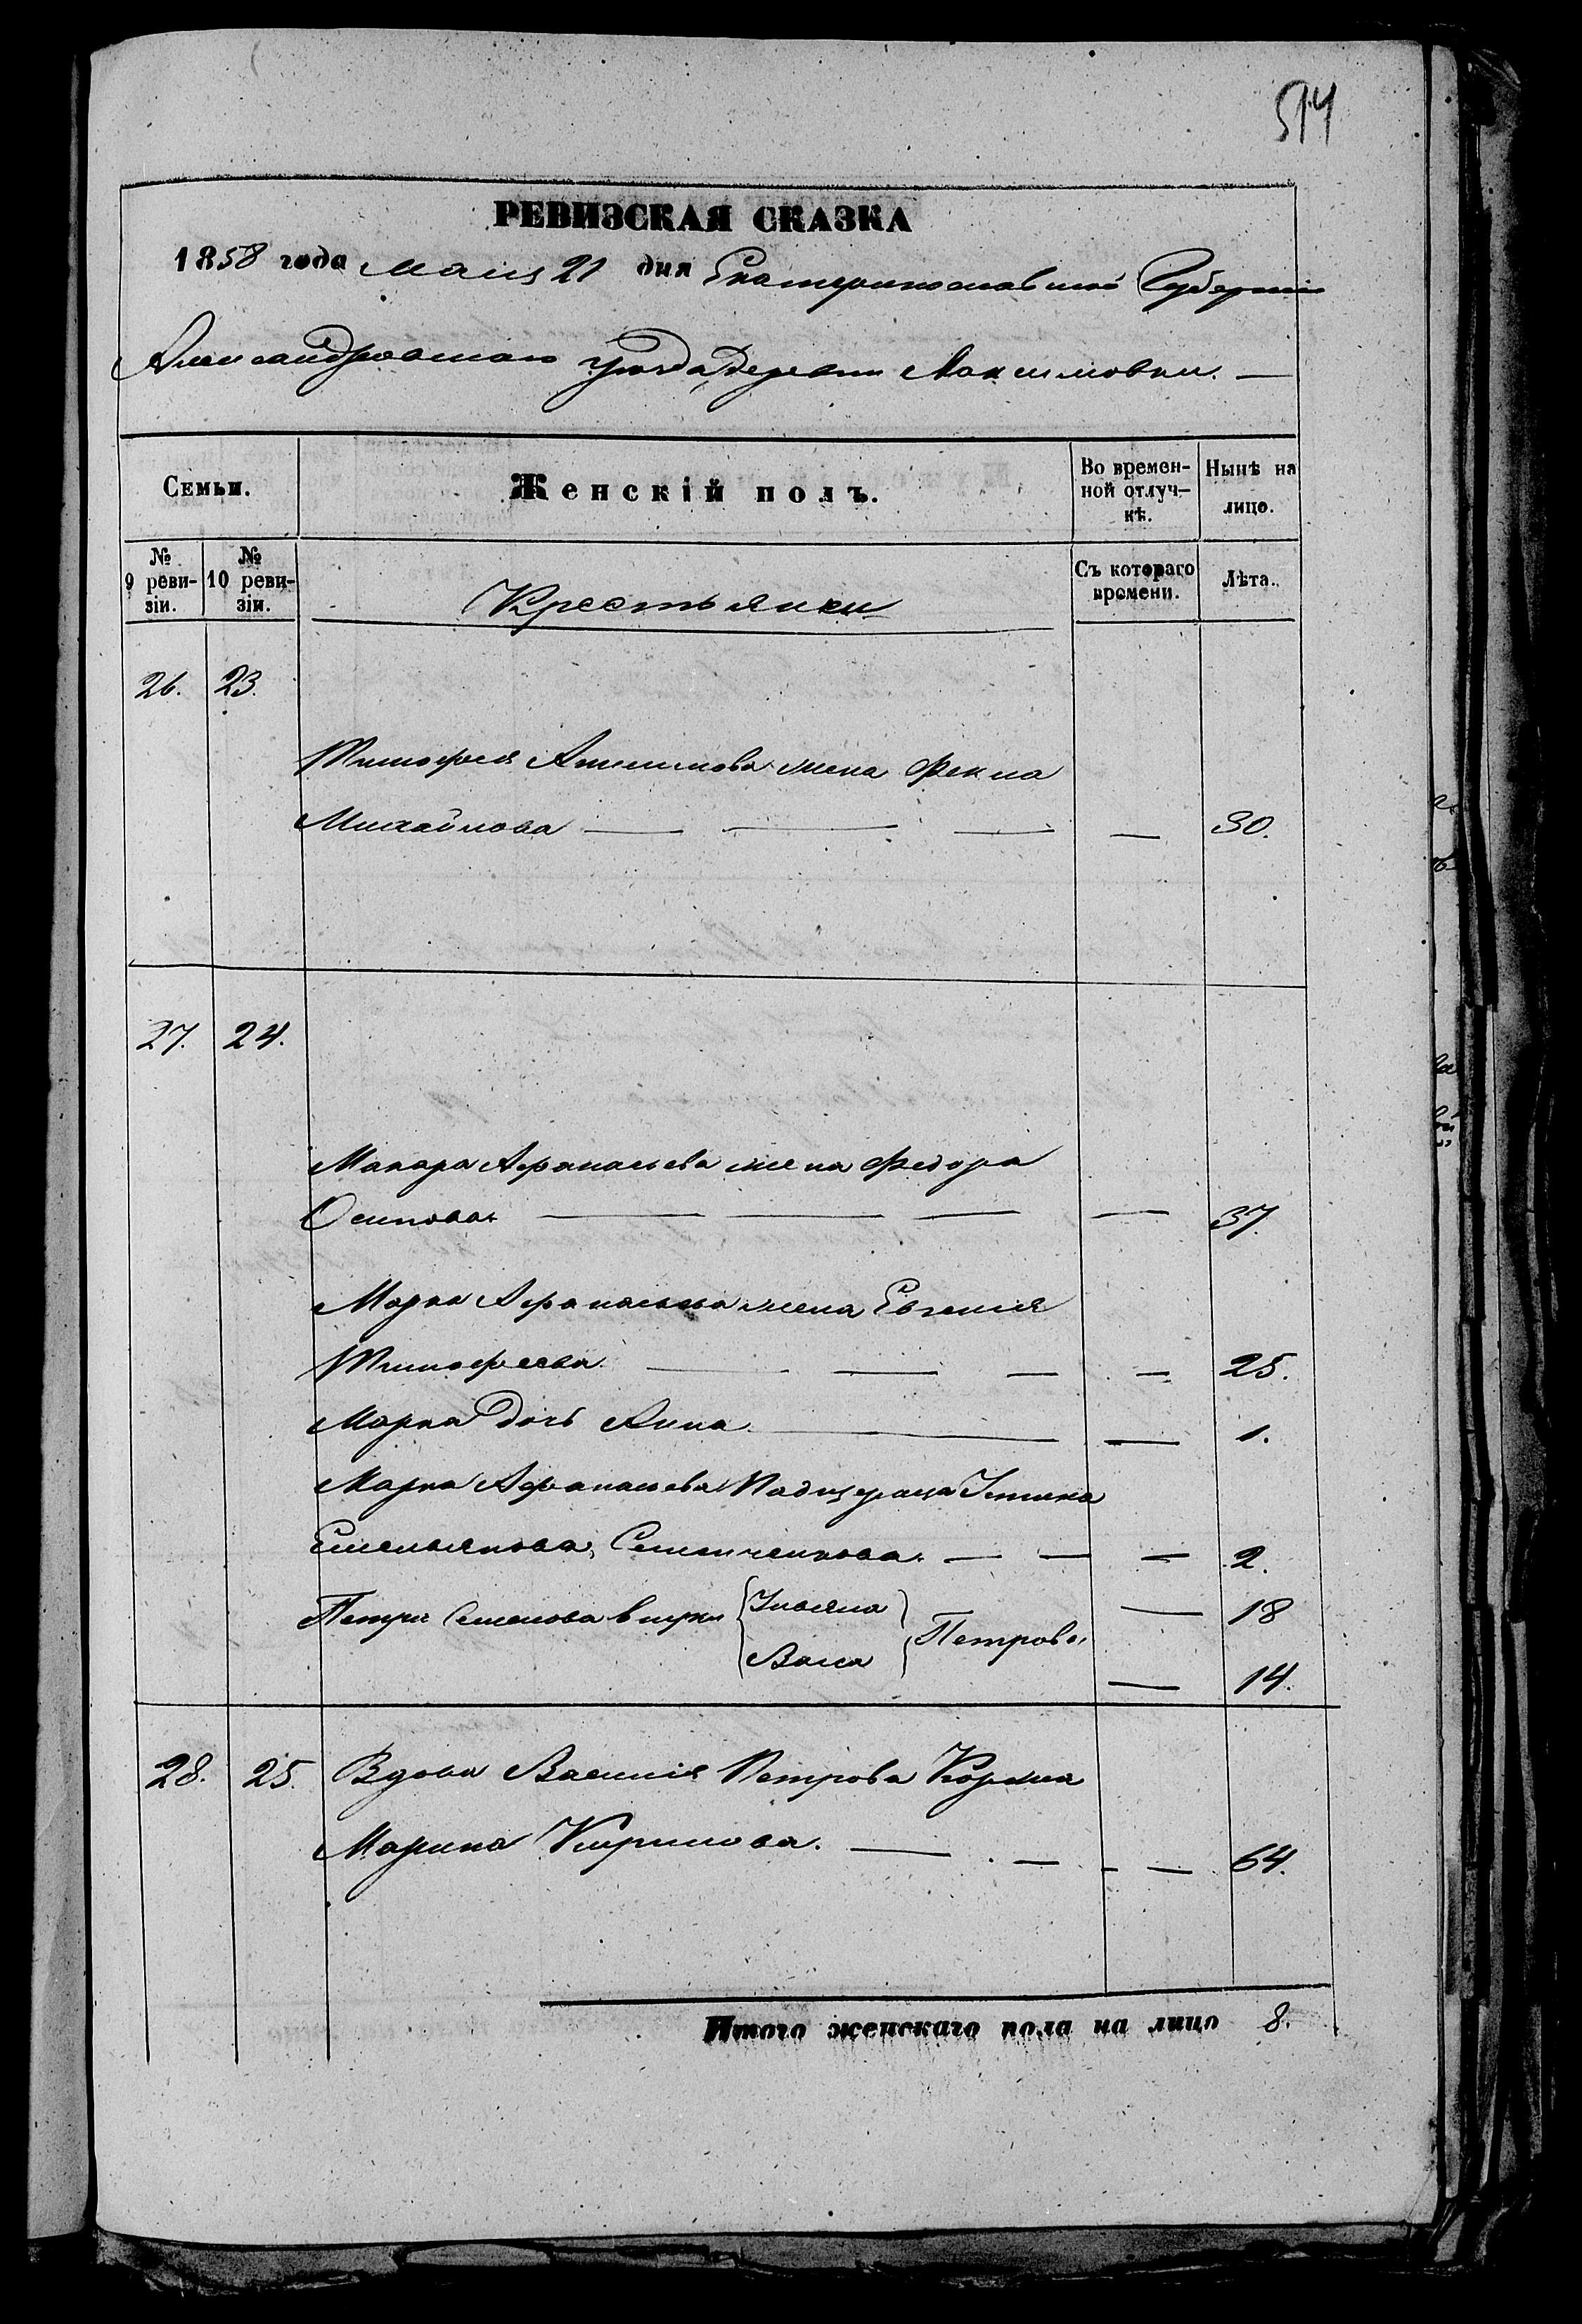 514
РЕВИЗСКАЯ СКАЗКА
1858 года Маія 21 дня Екатеринославской Губерніи
Александровскаго уѣзда Деревни Максимовки. —
Семьи. Женскій полъ. Во времен- ной отлуч- кѣ. Нынѣ на лицо.
№ 9 реви- зіи. № 10 реви- зіи. Крестьянки Съ котораго времени. Лѣта.
26. 23.
Тимофея Анисимова жена Фекла
Михайлова — — — — 30.
27. 24.
Макара Афанасьева жена Федора
Осипова — — — — 37.
Марка Афанасьева жена Евгенія
Тимофеева. — — — — 25.
Марка дочь Анна. — — 1.
Марка Афанасьева Падчерица Устина
Емельянова, Семенченкова. — — — 2.
Петра Семенова внуки Ульяна — 18
Васса Петровы — 14.
28. 25. Вдова Василія Петрова Коржа
Марина Кирилова. — — — — 64.
Итого женскаго пола на лицо 8.